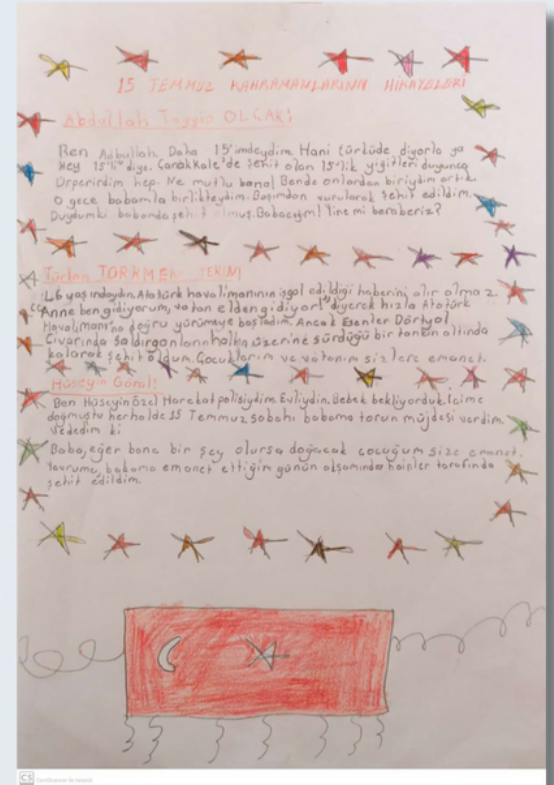 15 TEMMUZ KAHRAMANLARININ HİKAYELERİ
Abdullah Tayyip OLÇAK!
Ben Abdullah. Daha 15'imdeydim. Hani türküde diyorla ya
Hey 15'li diye. Çanakkale'de şehit olan 15'lik yiğitleri duyunca
Ürperirdim hep. Ne mutlu bana! Bende onlardan biriydim artık.
O gece babamla birlikteydim. Başımdan vurularak şehit edildim.
Duydumki babamda şehit olmuş. Babacığım! Yine mi beraberiz?
Türkan TÜRKMEN TEKİN!
46 yaşındaydım. Atatürk havalimanının işgal edildiği haberini alır almaz.
"Anne ben gidiyorum, vatan elden gidiyor!" diyerek hızla Atatürk
Havalimanı'na doğru yürümeye başladım. Ancak Esenler Dörtyol
Civarında saldırganların halkın üzerine sürdüğü bir tankın altında
kalarak şehit oldum. Çocuklarım ve vatanım sizlere emanet.
Hüseyin Göral!
Ben Hüseyin Özel Harekat polisiydim. Evliydim. Bebek bekliyorduk. İçime
doğmuştu herholde 15 Temmuz sabahı babama torun müjdesi verdim.
Vededim ki
Baba, eğer bana bir şey olursa doğacak çocuğum size emanet.
Yavrumu, babama emanet ettiğim günün akşamında hainler tarafında
şehit edildim.
CS